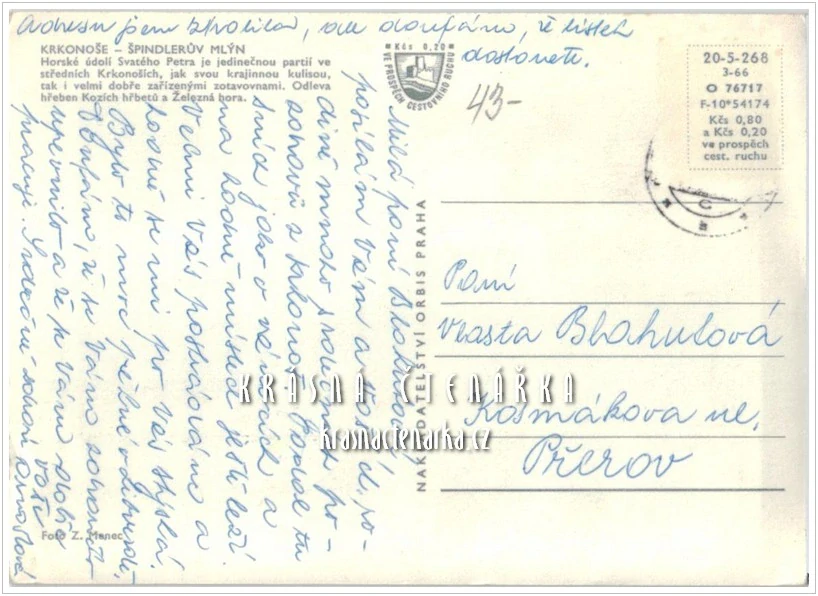 Adresu jsem ztratila, ale doufáme, že lístek
dostanete.
KRKONOŠE – ŠPINDLERŮV MLÝN
Horské údolí Svatého Petra je jedinečnou partií ve
středních Krkonoších, jak svou krajinnou kulisou,
tak i velmi dobře zařízenými zotavovnami. Odleva
hřeben Kozích hřbetů a Železná hora.
Kčs 0,20
VE PROSPĚCH CESTOVNÍHO RUCHU
43-
20-5-268
3-66
O 76717
F-10*54174
Kčs 0,80
a Kčs 0,20
ve prospěch
cest. ruchu
Milá paní Blahutová,
posílám Vám a
mnoho srdečných po-
zdravů z Krkonoš. tu
sníh jako o vánocích a
na zemi místech ještě leží.
Velmi Vás postrádáme a
se mi po Vás stýská.
Bylo to moc pěkné
Doufám, že se Vám
a že se Vám dobře
pracuje. Srdečně zdraví
Vaše
NAKLADATELSTVÍ ORBIS PRAHA
Paní
Vlasta Blahutová
Kosmákova ul.
Přerov
KRÁSNÁ ČTENÁŘKA
krasnactenarka.cz
Foto Z. Menec